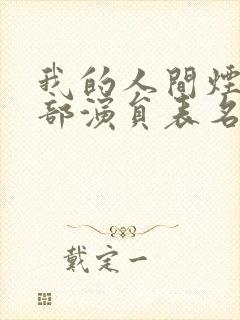 我的人間煙
部演員表名
戴定一